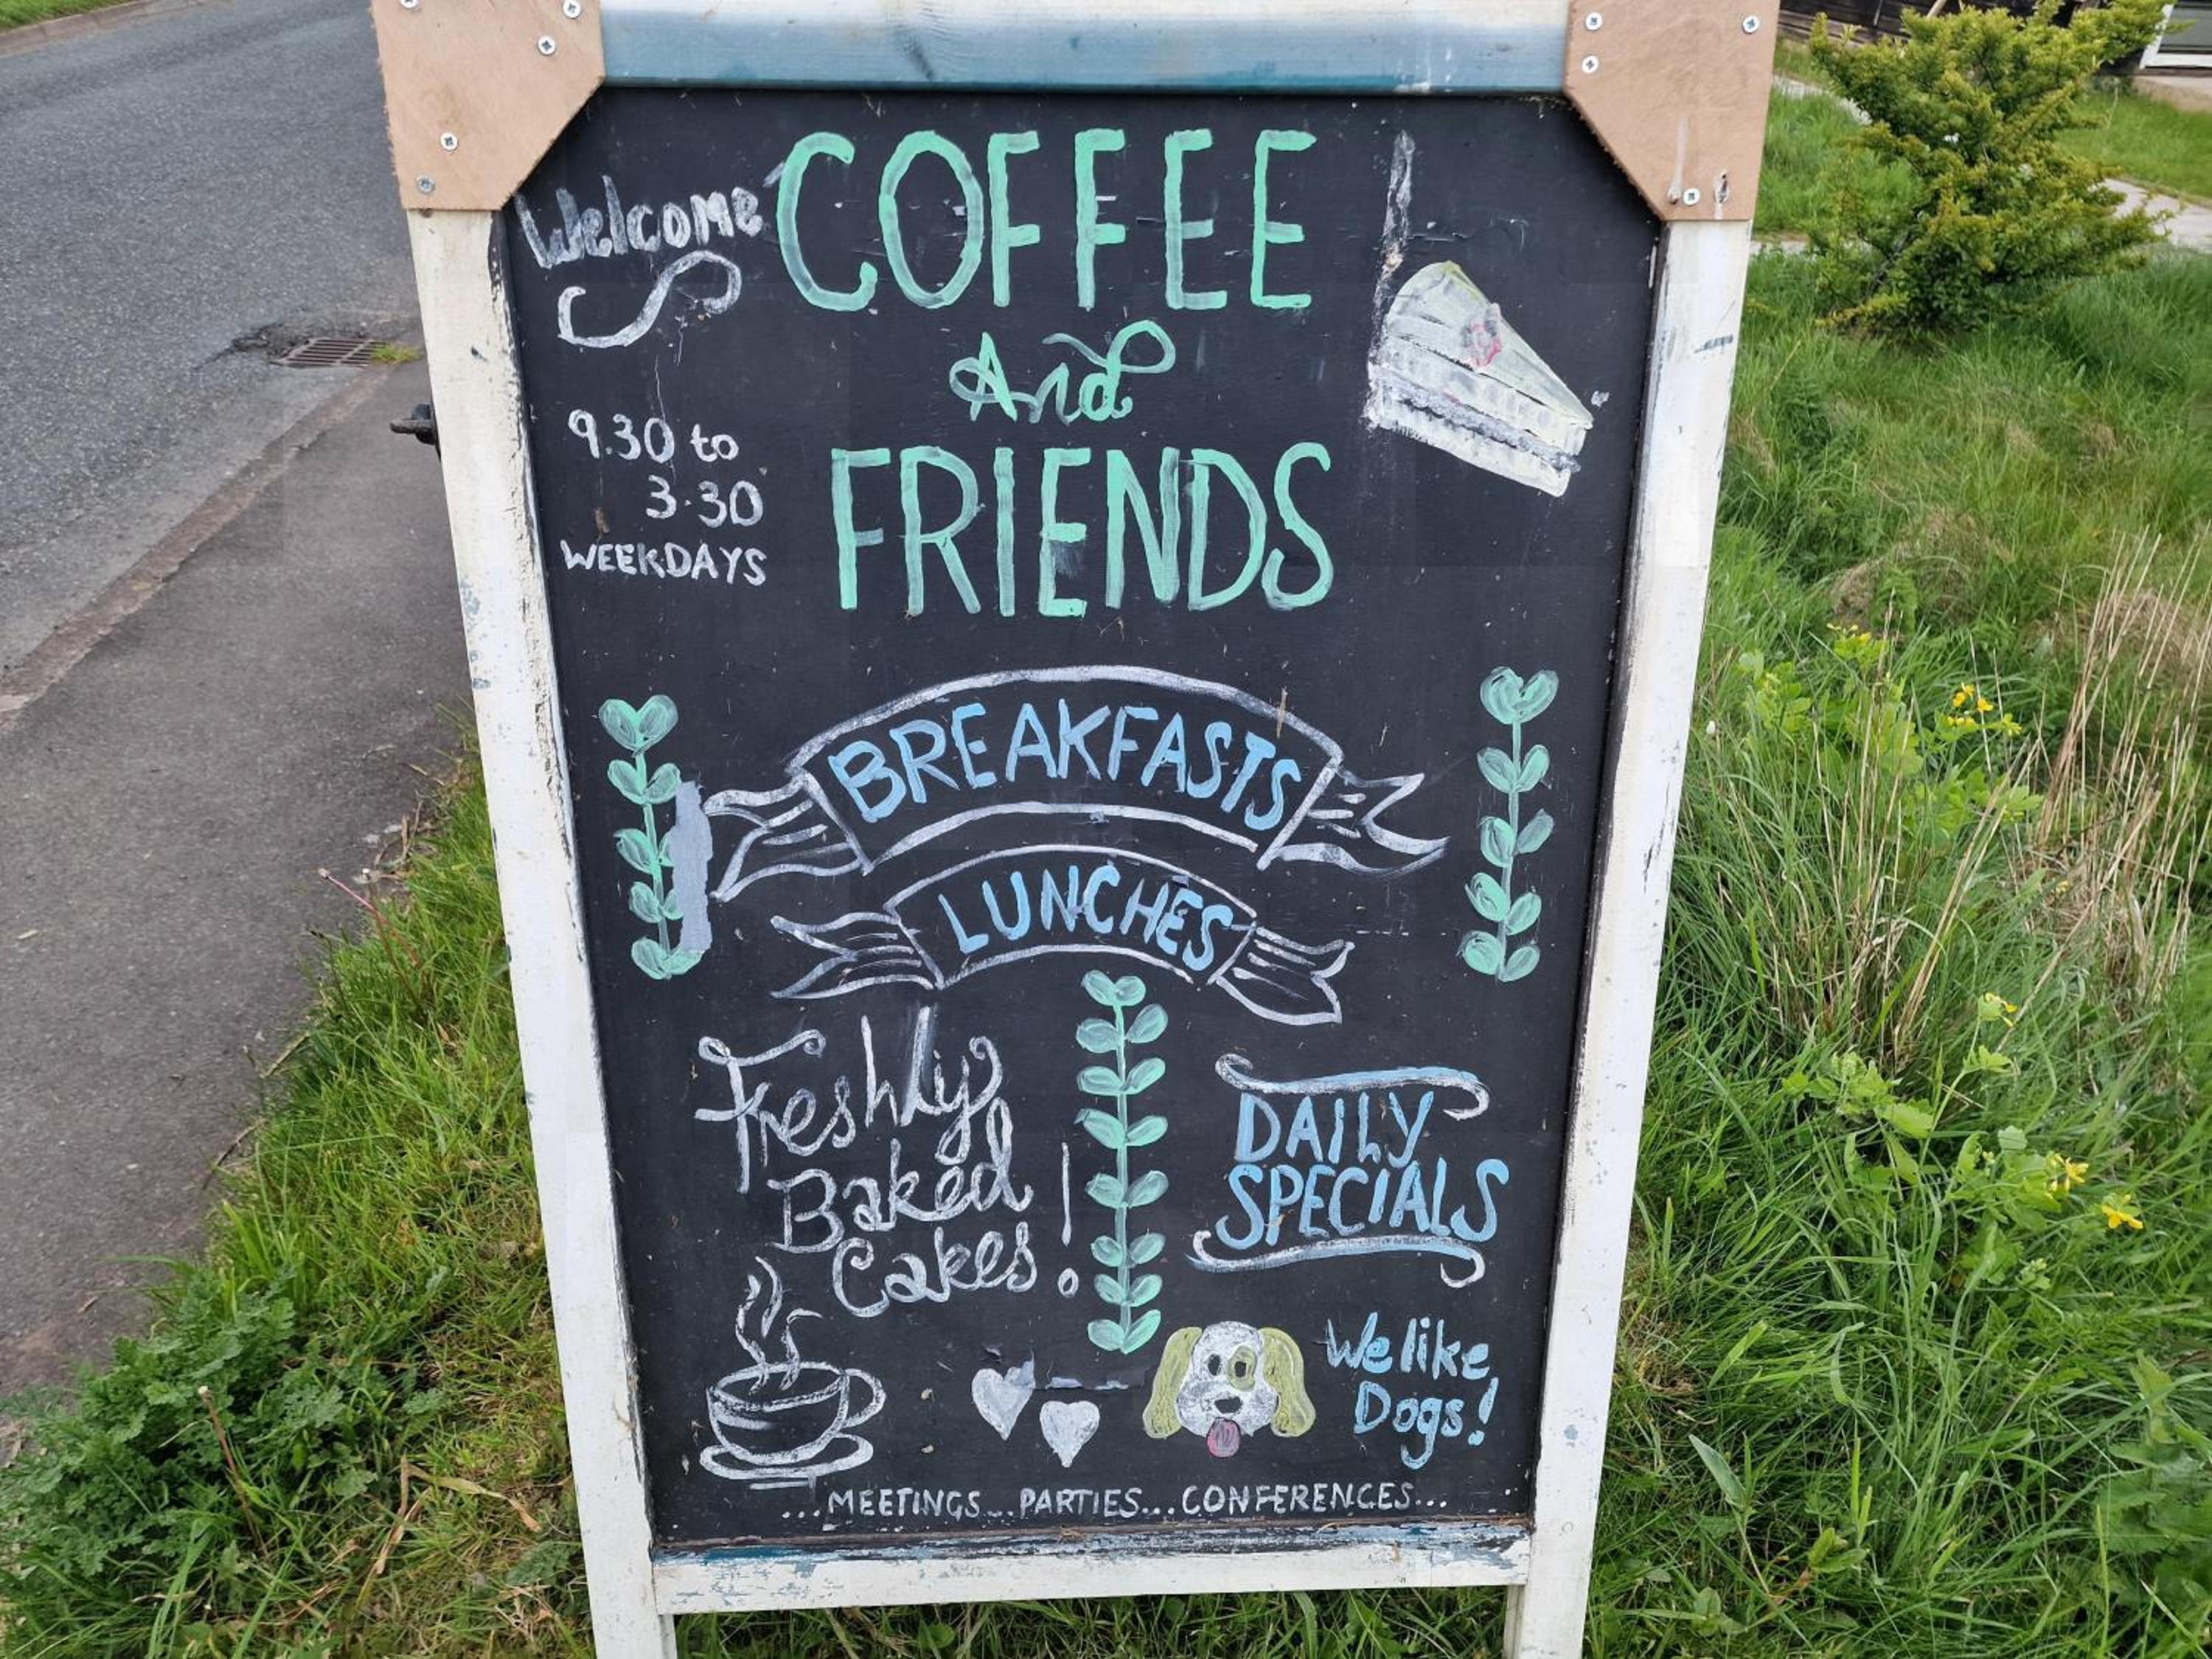 Welcome
COFFEE
And
FRIENDS
9.30 to
3.30
WEEKDAYS
BREAKFASTS
LUNCHES
Freshly
Baked
Cakes!
DAILY
SPECIALS
We like
Dogs!
...MEETINGS...PARTIES...CONFERENCES...